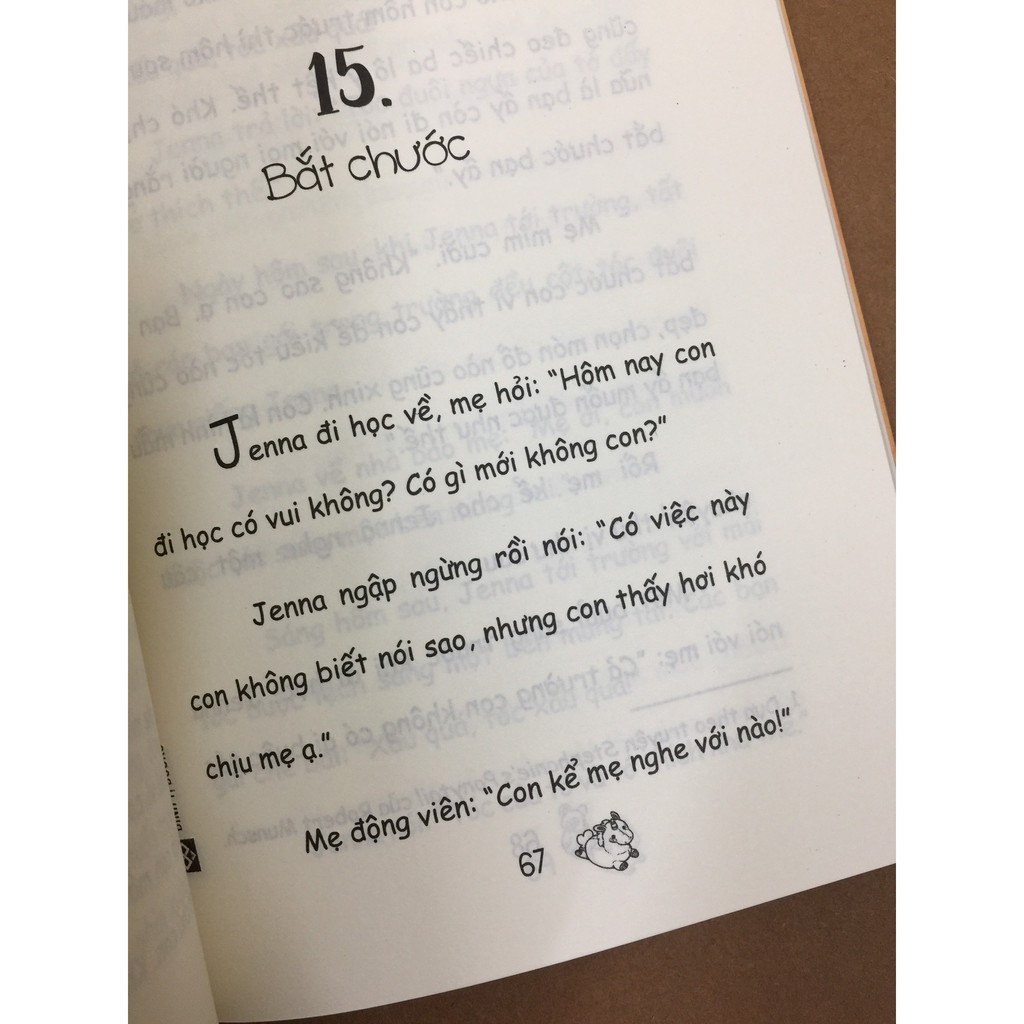 15.
Bắt chước
Jenna đi học về, mẹ hỏi: “Hôm nay con
đi học có vui không? Có gì mới không con?”
Jenna ngập ngừng rồi nói: “Có việc này
con không biết nói sao, nhưng con thấy hơi khó
chịu mẹ ạ.”
Mẹ động viên: “Con kể mẹ nghe với nào!”
67